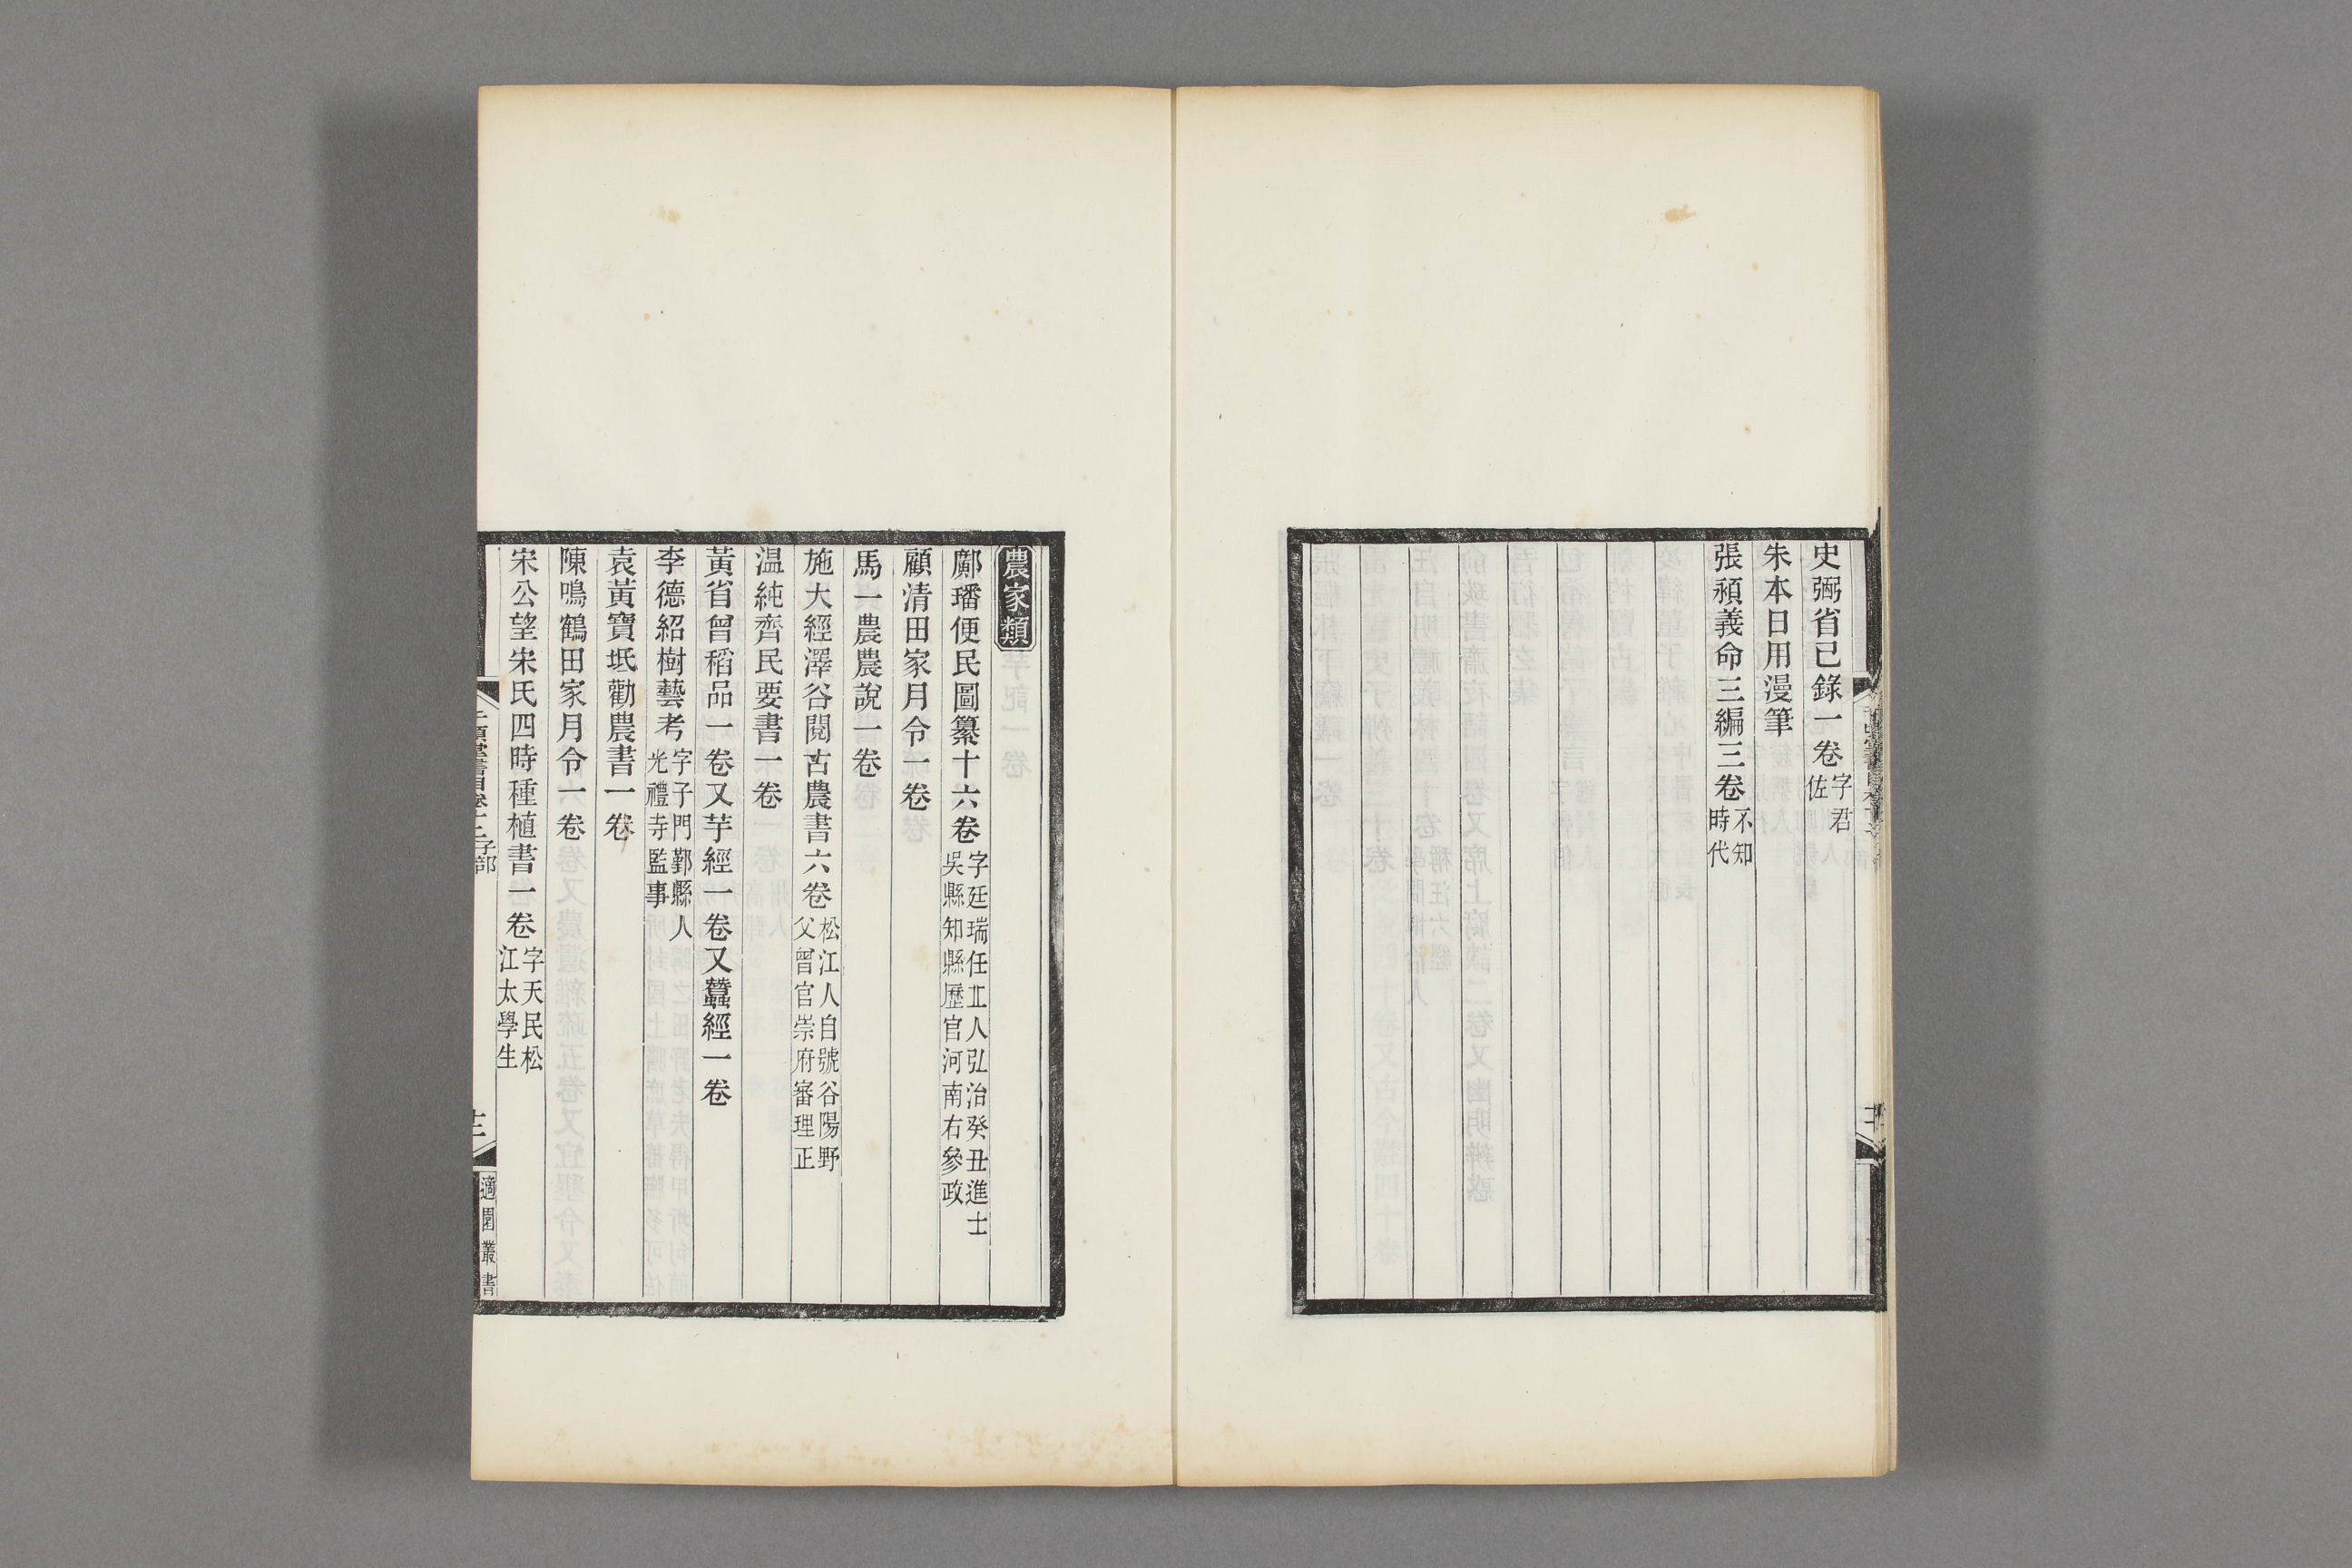 史弼省已錄一卷字君佐
朱本日用漫筆
張頯義命三編三卷不知時代
農家類
鄺璠便民圖纂十六卷字廷瑞任丘人弘治癸丑進士吳縣知縣歷官河南右參政
顧清田家月令一卷
馬一農農說一卷
施大經澤谷閱古農書六卷松江人自號谷陽野父曾官崇府審理正
温純齊民要書一卷
黃省曾稻品一卷又芋經一卷又蠶經一卷
李德紹樹藝考字子門鄞縣人光禮寺監事
袁黃寶坻勸農書一卷
陳鳴鶴田家月令一卷
宋公望宋氏四時種植書一卷字天民松江太學生
千頃堂書目卷十二子部
十二
適園叢書